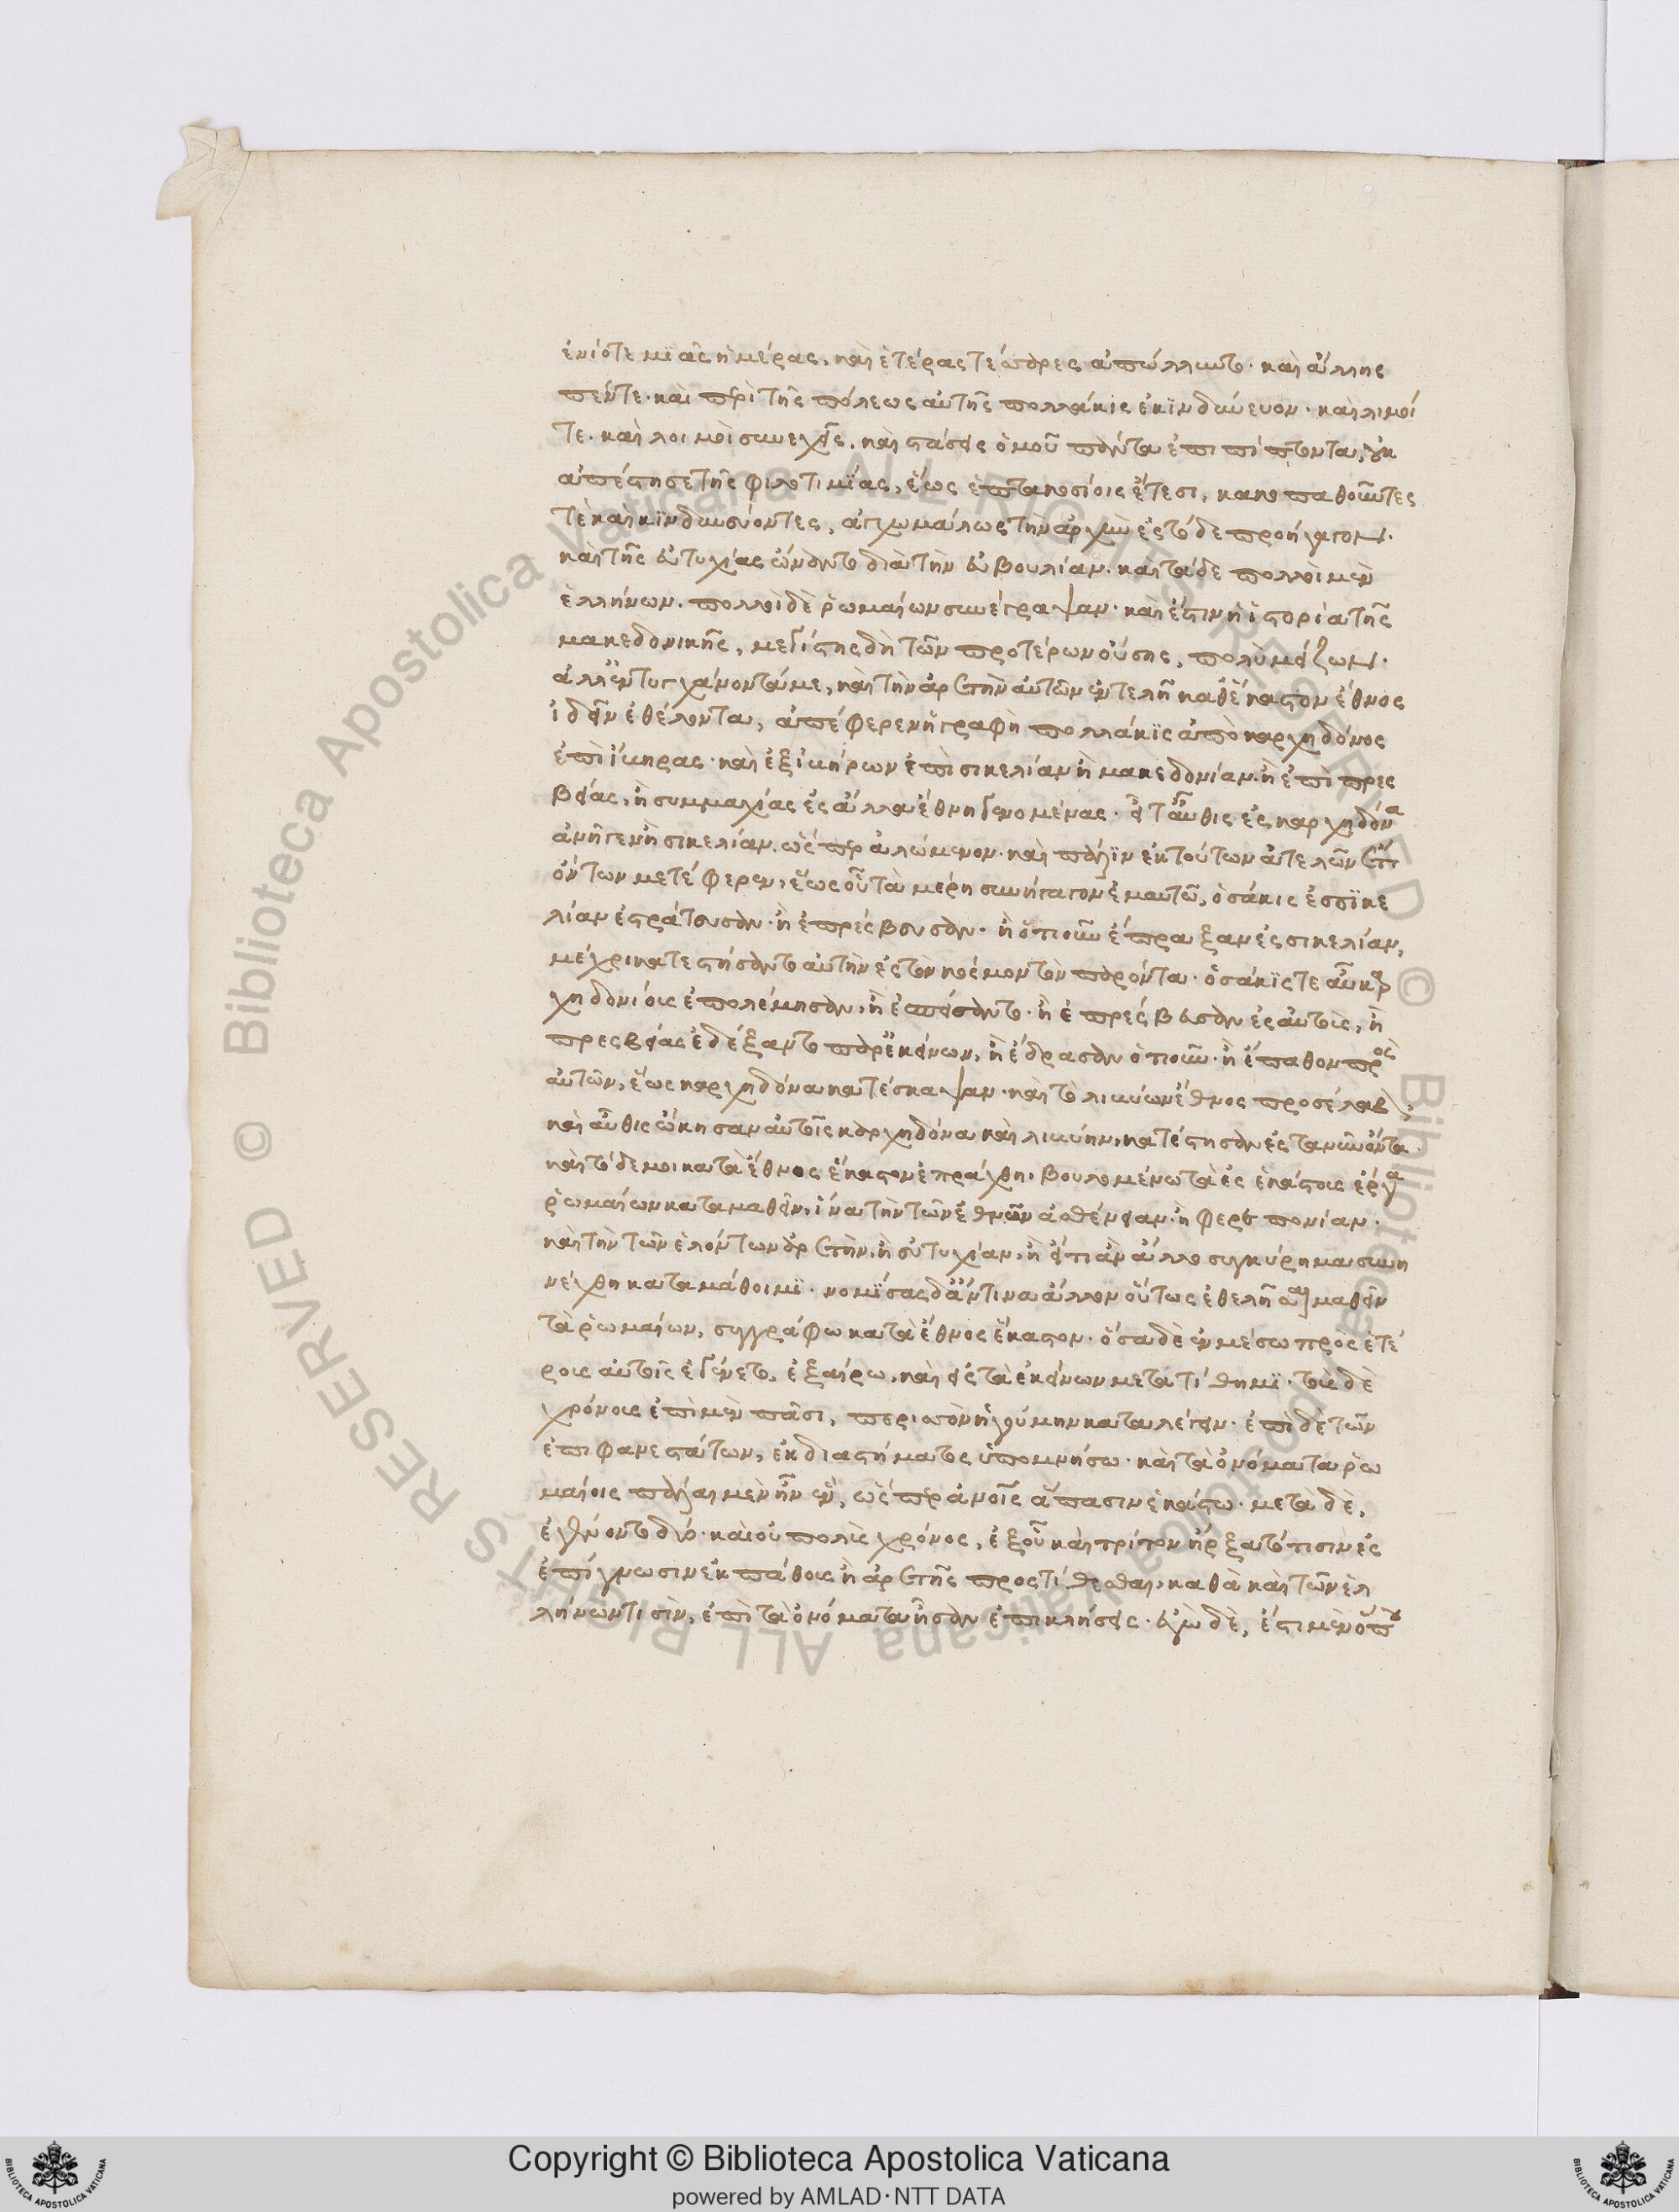 ἐνίοτε μϊᾶς ἡμέρας, καὶ ἑτέρας τέσσαρες ἀπώλλυντο· καὶ ἄλλης
πέντε· καὶ περὶ τῆς πόλεως αὐτῆς πολλάκις ἐκϊνδύνευον· καὶ λιμοί
τε· καὶ λοιμοὶ συνεχεῖς, καὶ στάσεις ὁμοῦ πάντα ἐπιπίπτοντα, οὐκ
ἀπέστησε τῆς φιλοτιμΐας, ἕως ἑπτακοσίοις ἔτεσι, κακοπαθοῦντες
τὲ καὶ κϊνδυνεύοντες, ἀγχωμάλως τὴν ἀρχὴν ἐς τόδε προήγαγον.
καὶ τῆς εὐτυχίας ὤναντο διὰ τὴν εὐβουλίαν. καὶ τάδε πολλοὶ μὲν
ἑλλήνων. πολλοὶ δὲ ῥωμαίων συνέγραψαν· καὶ ἔστιν ἡ ἱστορία τῆς
μακεδονικῆς, μεγίστης δὴ τῶν προτέρων οὔσης, πολὺ μείζων.
ἀλλ' ἐντυγχάνοντά με, καὶ τὴν ἀρετὴν αὐτῶν ἐντελῆ καθ' ἕκαστον ἔθνος
ἰδεῖν ἐθέλοντα, ἀπέφερεν ἡ γραφὴ πολλάκϊς ἀπὸ καρχηδόνος
ἐπὶ ἴβηρας· καὶ ἐξ ἰβήρων ἐπὶ σικελίαν ἢ μακεδονίαν. ἢ ἐπὶ πρεσ
βείας, ἢ συμμαχίας ἐς ἄλλα ἔθνη γενομένας· εἶτ' αὖθις ἐς καρχηδόνα
ἀνῆγεν ἢ σικελίαν, ὥσπερ ἀλώμενον· καὶ πάλϊν ἐκ τούτων ἀτελῶν ἔτι
ὄντων μετέφερεν, ἕως οὗ τὰ μέρη συνήγαγον ἐμαυτῶ, ὁσάκις ἐς σϊκε
λίαν ἐστράτευσαν· ἢ ἐπρέσβευσαν· ἢ ὁτιοῦν ἔπραξαν ἐς σικελίαν,
μέχρι κατεστήσαντο αὐτὴν ἐς τὸν κόσμον τὸν παρόντα· ὁσάκϊς τε αὖ καρ
χηδονίοις ἐπολέμησαν, ἢ ἐσπείσαντο· ἢ ἐπρέσβευσαν ἐς αὐτοὺς, ἢ
πρεσβείας ἐδέξαντο παρ' ἐκείνων, ἢ ἔδρασαν ὁτιοῦν· ἢ ἔπαθον πρὸς
αὐτῶν, ἕως καρχηδόνα κατέσκαψαν· καὶ τὸ λιβύων ἔθνος προσέλαβον,
καὶ αὖθις ᾤκησαν αὐτοῖς καρχηδόνα καὶ λιβύην, κατέστησαν ἐς τὰ νῦν ὄντα.
καὶ τόδε μοι κατὰ ἔθνος ἕκαστον ἐπράχθη, βουλομένω τὰ ἐς ἑκάστοις ἔργα
ῥωμαίων καταμαθεῖν, ἵνα τὴν τῶν ἐθνῶν ἀσθένειαν. ἢ φερεπονίαν.
καὶ τὴν τῶν ἑλόντων ἀρετὴν, ἢ εὐτυχίαν, ἢ εἴ τι ἂν ἄλλο συγκύρημα συνη
νέχθη καταμάθοιμϊ. νομΐσας δ' ἄν τινα ἄλλον οὕτως ἐθελῆσαι μαθεῖν
τὰ ῥωμαίων, συγγράφω κατὰ ἔθνος ἕκαστον· ὅσα δὲ ἐν μέσω πρὸς ἑτέ
ροις αὐτοῖς ἐγένετο, ἐξαίρω, καὶ εἰς τὰ ἐκείνων μετατίθημϊ· τοὺς δὲ
χρόνους ἐπὶ μὲν πᾶσι, περισσὸν ἡγούμην καταλέγειν· ἐπὶ δὲ τῶν
ἐπιφανεστάτων, ἐκ διαστήματος ὑπομνήσω· καὶ τὰ ὀνόματα ῥω
μαίοις πάλαι μὲν ἦν ἓν, ὥσπερ ἀνοῖς ἅπασιν ἑκάστω. μετὰ δὲ,
ἐγένοντο δύο· καὶ οὐ πολὺς χρόνος, ἐξ οὗ καὶ τρίτον ἤρξατό τισιν ἐς
ἐπίγνωσιν ἐκ πάθους ἢ ἀρετῆς προστίθεσθαι, καθὰ καὶ τῶν ἑλ
λήνων τισὶν, ἐπὶ τὰ ὀνόματα ἦσαν ἐπικλήσεις· ἐγὼ δὲ, ἔστι μὲν ὅπου